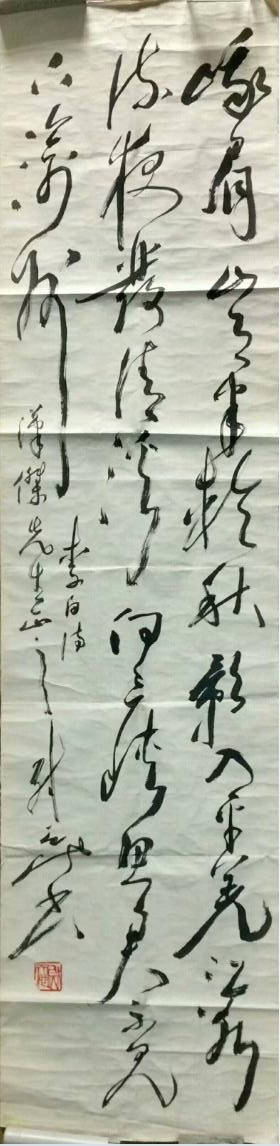 峨眉山月半輪秋影入平羌江水
流夜發清溪向三峽思君不見
下渝州
李白詩
傑先生正之